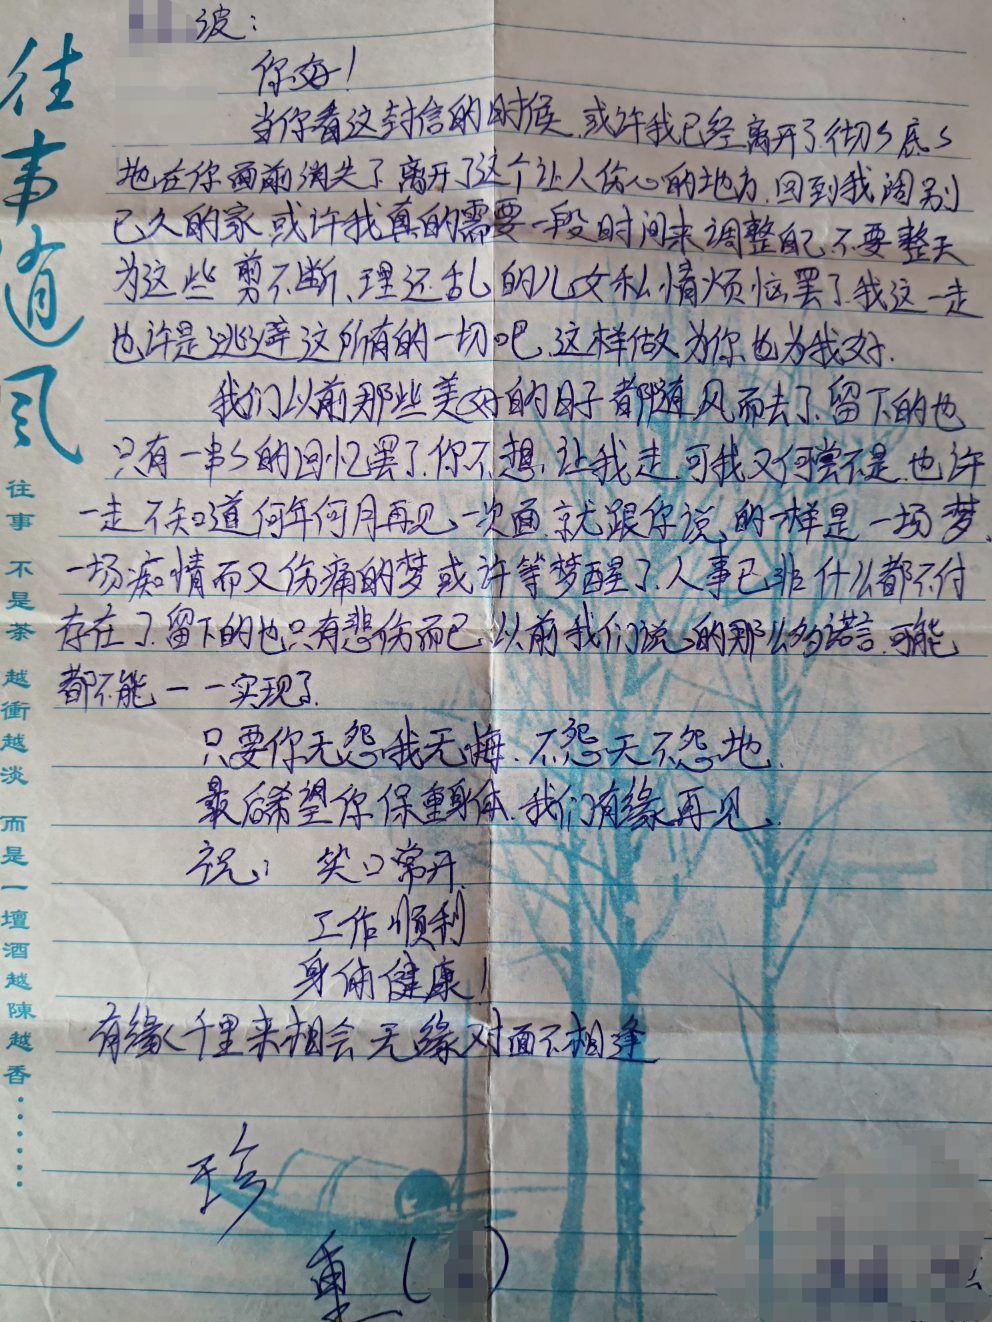 往事随风
往事不是茶越衝越淡而是一壇酒越陳越香······
波:
你好!
当你看这封信的时候.或许我已经离开了.彻々底々
地在你面前消失了.离开了这个让人伤心的地方.回到我阔别
已久的家.或许我真的需要一段时间来调整自己.不要整天
为这些剪不断、理还乱的儿女私情烦恼罢了.我这一走
也许是逃避这所有的一切吧.这样做为你也为我好.
我们以前那些美好的日子都随风而去了.留下的也
只有一串々的回忆罢了.你不想.让我走.可我又何尝不是.也许
一走不知道何年何月再见一次面.就跟你说的一样是一场梦.
一场痴情而又伤痛的梦.或许等梦醒了.人事已非什么都不付
存在了.留下的也只有悲伤而已.以前我们说的那么多诺言.可能
都不能一一实现了.
只要你无怨.我无悔.不怨天不怨地.
最后希望你保重身体.我们有缘再见.
祝: 笑口常开.
工作顺利
身体健康!
有缘千里来相会无缘对面不相逢
珍
重()